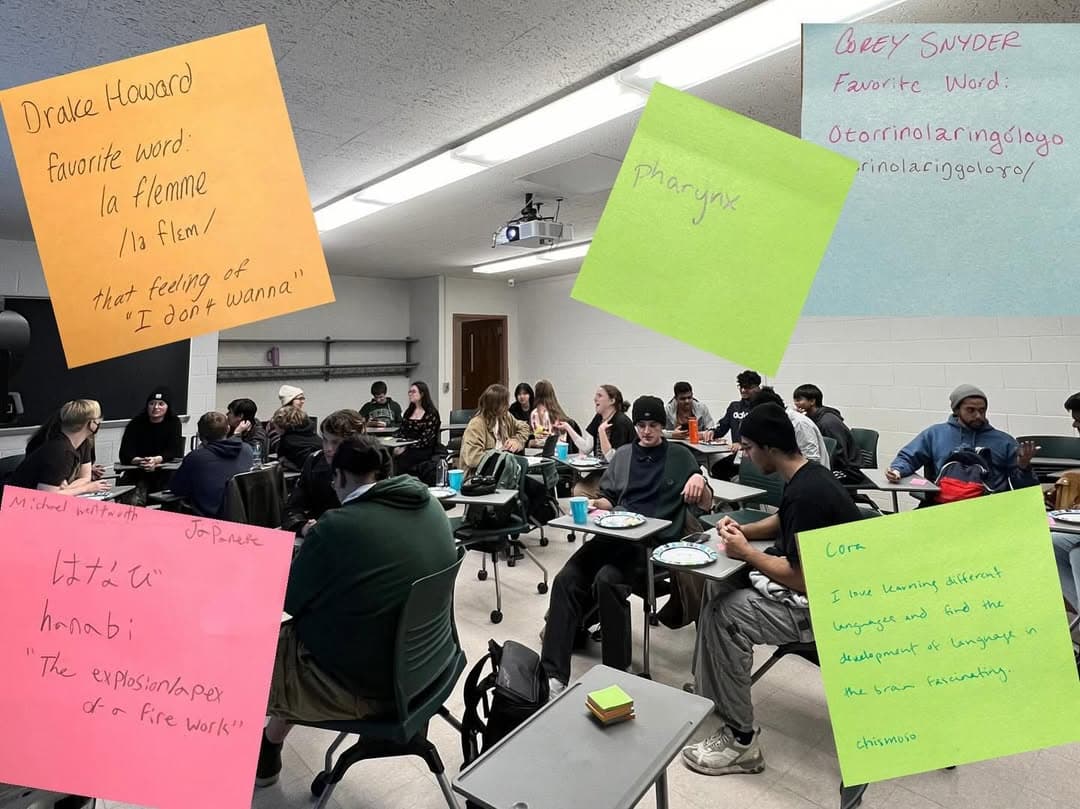 Drake Howard
favorite word:
la flemme
/la flɛm/
that feeling of
"I don't wanna"
pharynx
COREY SNYDER
Favorite Word:
Otorrinolaringólogo
Michael Wentworth
Japanese
はなび
hanabi
"The explosion/apex
of a fire work"
Cora
I love learning different
languages and find the
development of language in
the brain fascinating.
chismoso
adidas